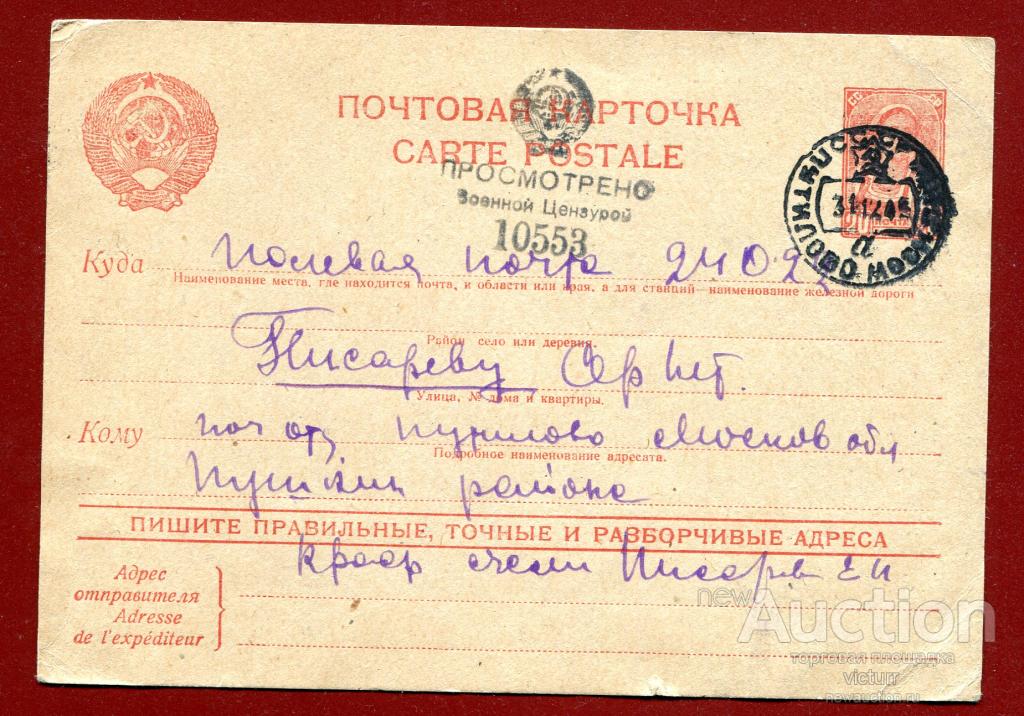 ПОЧТОВАЯ КАРТОЧКА
CARTE POSTALE
ПРОСМОТРЕНО
Военной Цензурой
10553
Куда Полевая почта 24023
Наименование места, где находится почта, и области или края, а для станций—наименование железной дороги
Район село или деревня.
Писареву Сер Пет.
Улица, № дома и квартиры.
Кому поч отд Пушкино Москов обл
Подробное наименование адресата.
района
ПИШИТЕ ПРАВИЛЬНЫЕ, ТОЧНЫЕ И РАЗБОРЧИВЫЕ АДРЕСА
Писарев Е И
Адрес
отправителя
Adresse
de l'expéditeur
newAuction
торговая площадка
victurr
newauction.ru